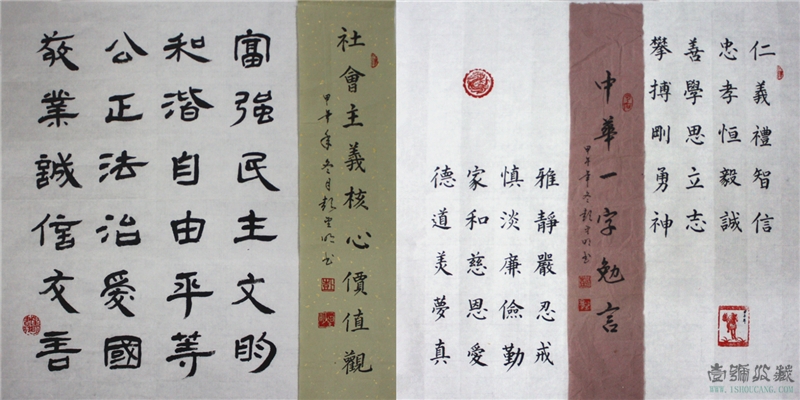 仁義禮智信
忠孝恒毅誠
善學思立志
攀搏剛勇神
中華一字勉言
甲午年冬彭云明书
雅靜嚴忍戒
慎淡廉儉勤
家和慈恩愛
德道美夢真
社會主義核心價值觀
甲午年冬月彭云明书
富强民主文明
和谐自由平等
公正法治爱國
敬業誠信友善
壹號收藏
www.1shoucang.com